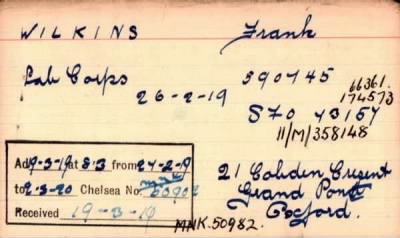 WILKINS Frank
Lab Corps 590745 66361.
174573
26-2-19 S70 43157
11/M/358148
Ad 19-3-19 at 8.3 from 27-2-19
to 2-3-20 Chelsea No.
Received 19-3-19
21 Cobden Cresent
Grand Pont
Oxford.
MNK.50982.